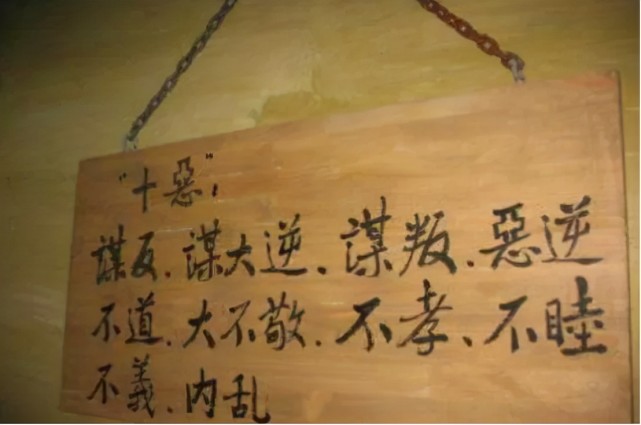 "十惡"：
謀反、謀大逆、謀叛、惡逆
不道、大不敬、不孝、不睦
不義、内乱